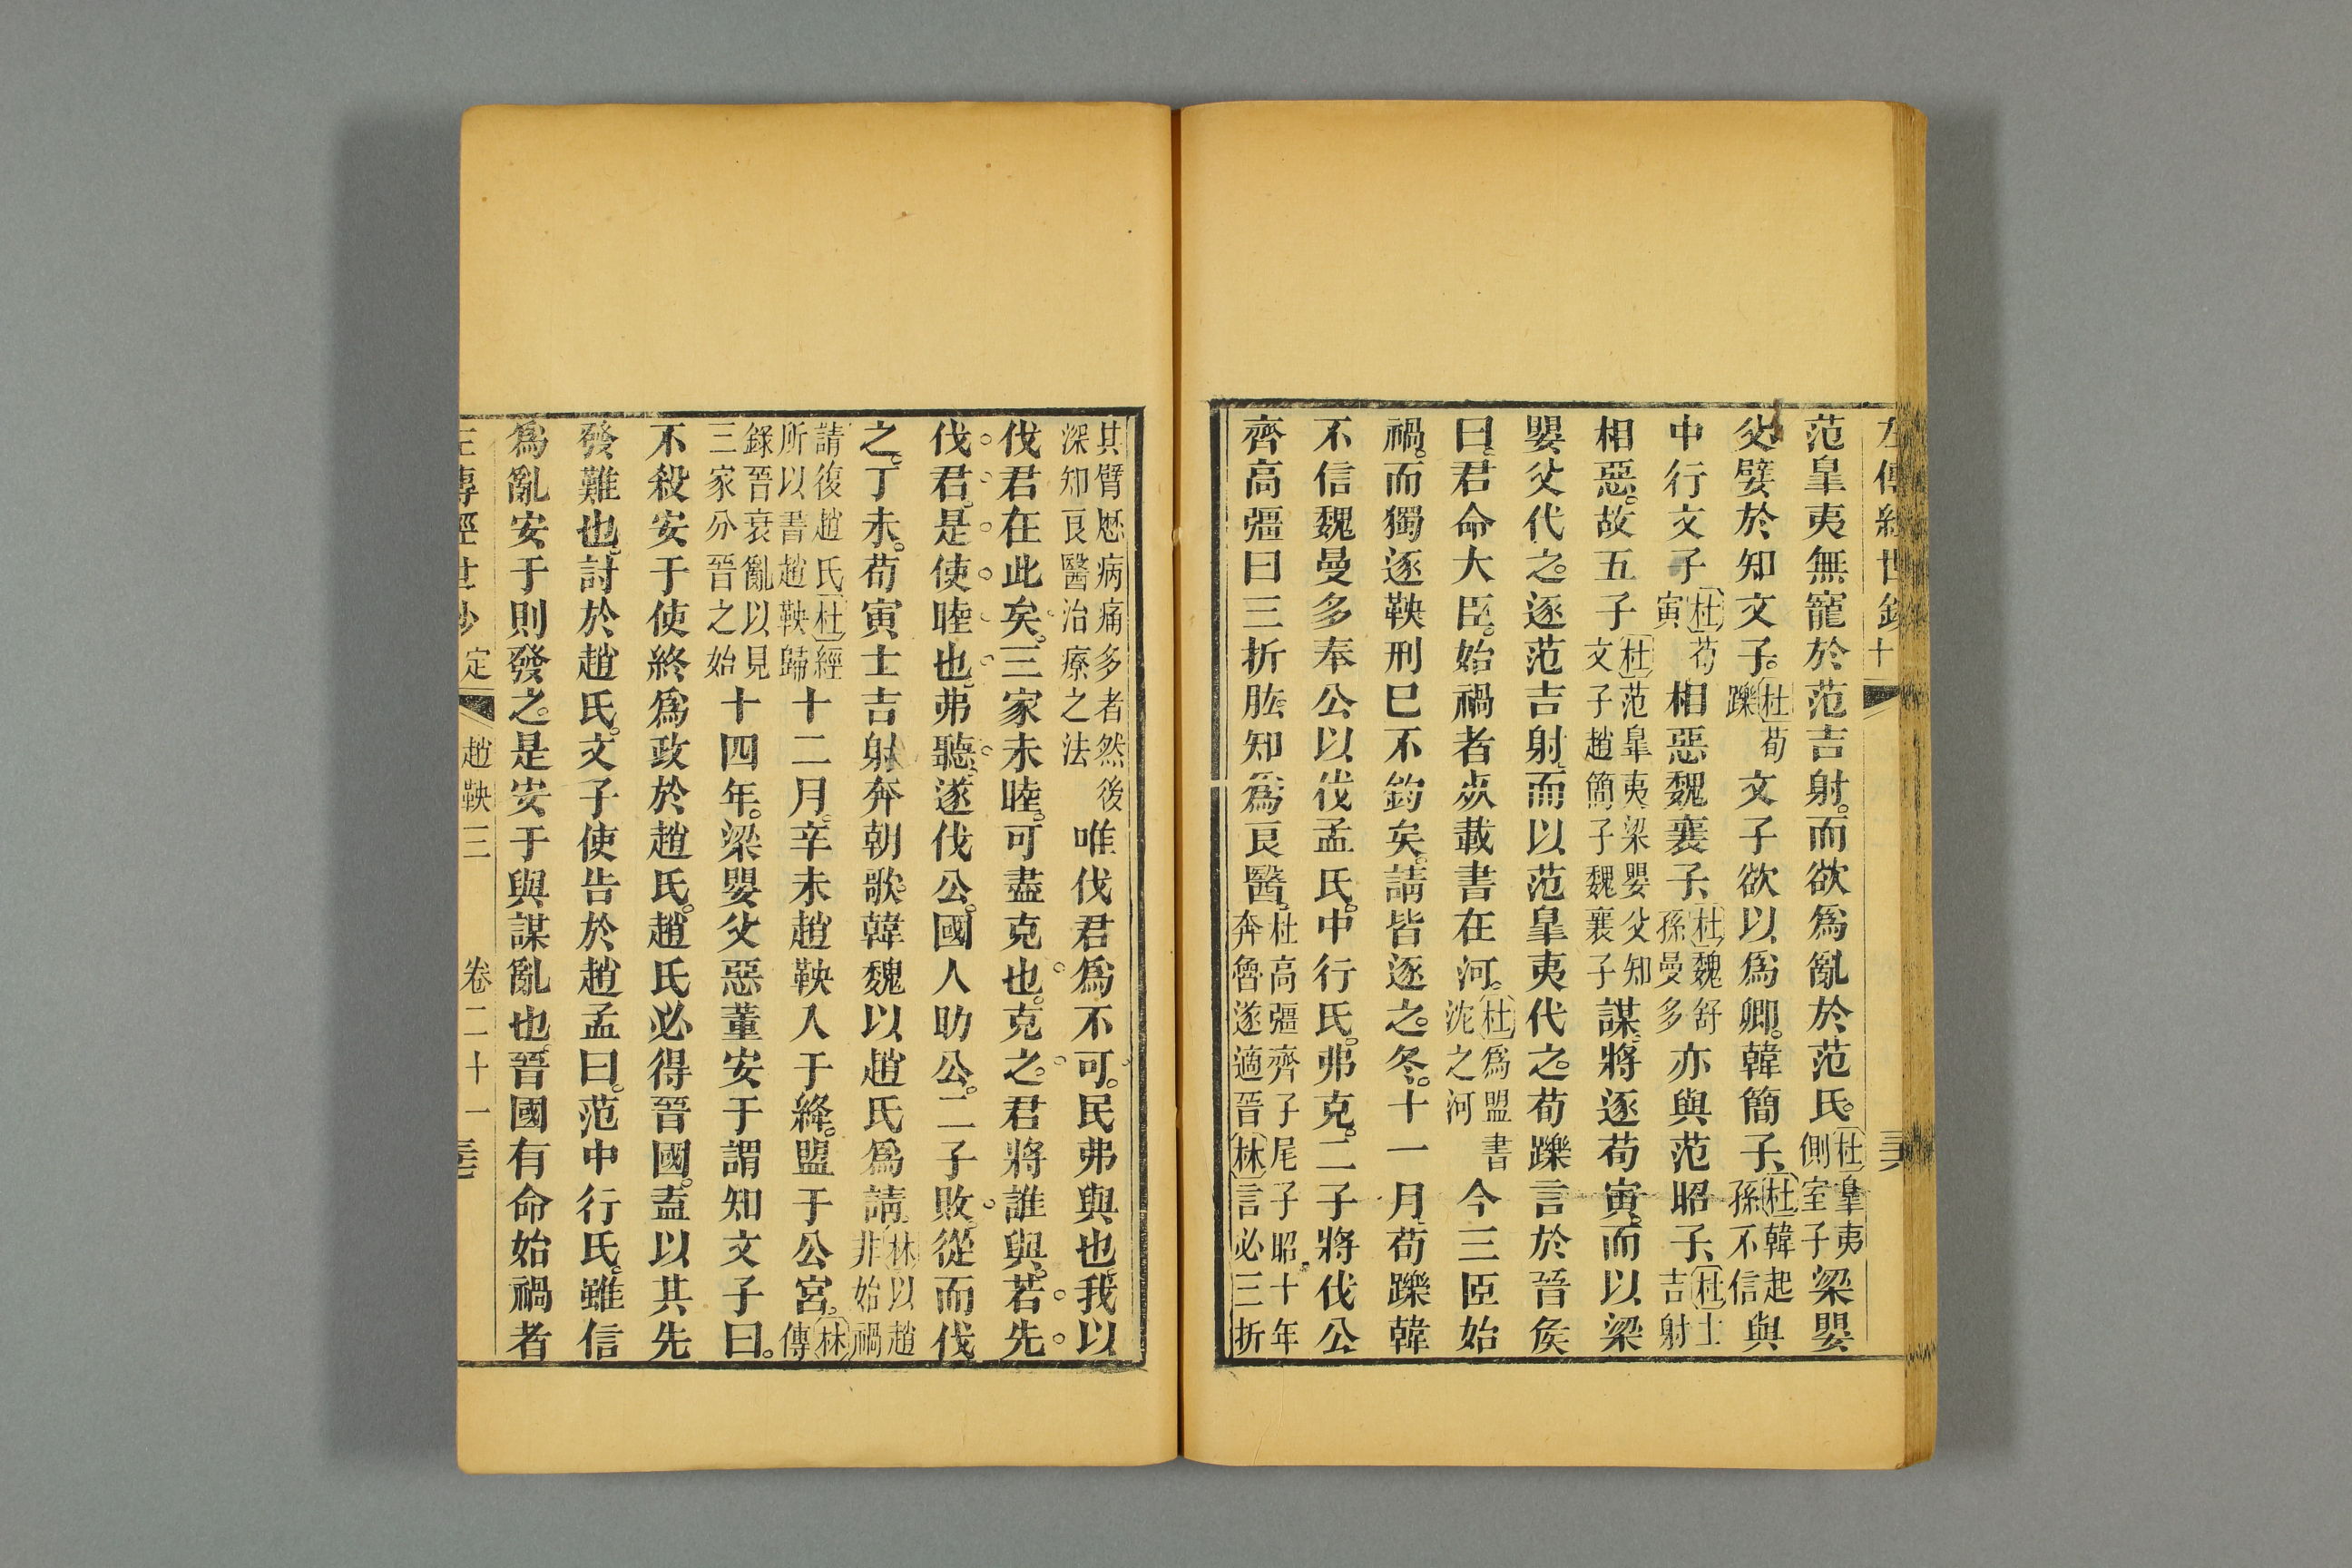 范皐夷無寵於范吉射而欲爲亂於范氏杜皐夷側室子梁嬰
父嬖於知文子杜荀躒文子欲以爲卿韓簡子杜韓起孫不信與
中行文子杜荀寅相惡魏襄子杜魏舒孫曼多亦與范昭子杜士吉射
相惡故五子杜范皐夷梁嬰父知文子趙簡子魏襄子謀將逐荀寅而以梁
嬰父代之逐范吉射而以范皐夷代之荀躒言於晉矦
曰君命大臣始禍者死載書在河杜爲盟書沈之河今三臣始
禍而獨逐鞅刑巳不鈞矣請皆逐之冬十一月荀躒韓
不信魏曼多奉公以伐孟氏中行氏弗克二子將伐公
齊高彊曰三折肱知爲良醫杜高彊齊子尾子昭十年奔魯遂適晉林言必三折
其臂歷病痛多者然後深知良醫治療之法唯伐君爲不可民弗與也我以
伐君在此矣三家未睦可盡克也克之君將誰與若先
伐君是使睦也弗聽遂伐公國人助公二子敗從而伐
之丁未荀寅士吉射奔朝歌韓魏以趙氏爲請林以趙非始禍
請復趙氏杜經所以書趙鞅歸十二月辛未趙鞅入于絳盟于公宮林傳
錄晉衰亂以見三家分晉之始十四年梁嬰父惡董安于謂知文子曰
不殺安于使終爲政於趙氏趙氏必得晉國盍以其先
發難也討於趙氏文子使告於趙孟曰范中行氏雖信
爲亂安于則發之是安于與謀亂也晉國有命始禍者
定 趙鞅三 卷二十一